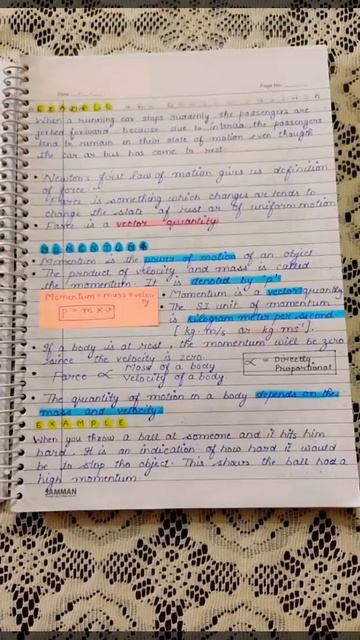 Date
Page No.
EXAMPLE
When a running car stops suddenly, the passengers are
jerked forward because due to inertia the passengers
tend to remain in their state of motion even though
the car or bus has come to rest.
• Newton's first law of motion gives us definition
of force -
Force is something which changes or tends to
change the state of rest or of uniform motion
• Force is a vector quantity
MOMENTUM
• Momentum is the power of motion of an object
The product of velocity and mass is called
the momentum. It is denoted by 'p'
Momentum = mass x velocity
p = m x v
• Momentum is a vector quantity
• The SI unit of momentum
is kilogram meter per second
[kg.m/s or kg ms⁻¹].
If a body is at rest, the momentum will be zero
since the velocity is zero.
Force ∝ Mass of a body
Velocity of a body
∝ = Directly
Proportional
• The quantity of motion in a body depends on the
mass and velocity.
EXAMPLE
When you throw a ball at someone and it hits him
hard. It is an indication of how hard it would
be to stop the object. This shows the ball had a
high momentum
JAMMAN